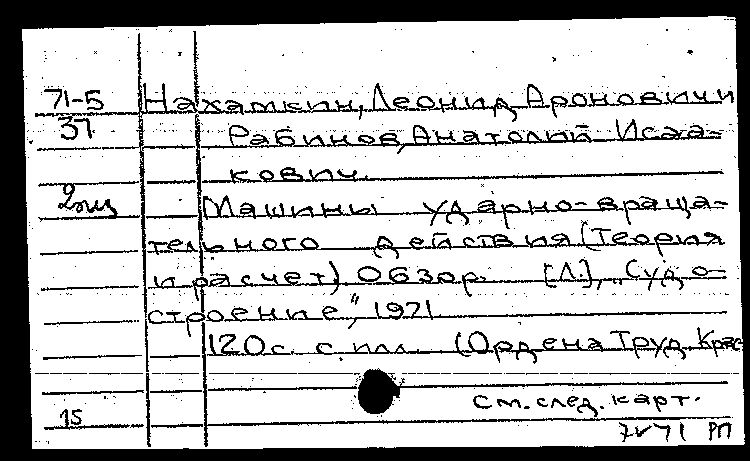 71-5 Нахамкин, Леонид Аронович и
37 Рабинов, Анатолий Исаа-
кович.
2экз Машины ударно-враща-
тельного действия (Теория
и расчет) Обзор. [Л.], „Судо-
строение", 1971
120с. с илл. (Ордена Труд. Крас
см. след. карт.
15
71 РП